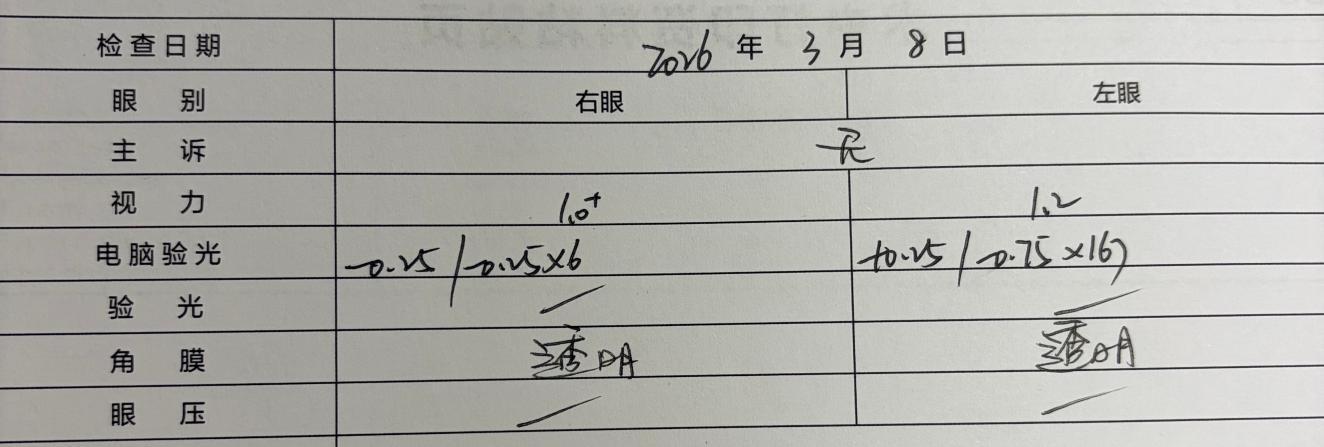 检查日期 2026 年 3 月 8 日
眼 别 右眼 左眼
主 诉 无
视 力 1.0+ 1.2
电脑验光 -0.25/-0.25×6 +0.25/-0.75×167
验 光 / /
角 膜 透明 透明
眼 压 / /